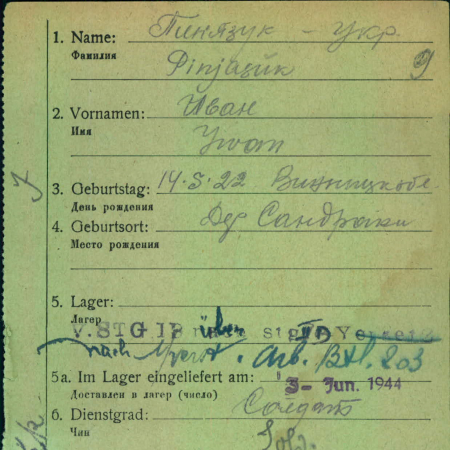 1. Name: Пинязук - Укр.
Фамилия
Pinjasuk
2. Vornamen: Иван
Имя
Ywan
3. Geburtstag: 14.5.22 Винницкобл.
День рождения
4. Geburtsort: Дер. Сандраки
Место рождения
5. Lager:
Лагерь
V. STG IB über Stg. II D
nach . Arb. Btl. 203
5a. Im Lager eingeliefert am: 3- Jun. 1944
Доставлен в лагерь (число)
6. Dienstgrad: Солдат
Чин
Sold.